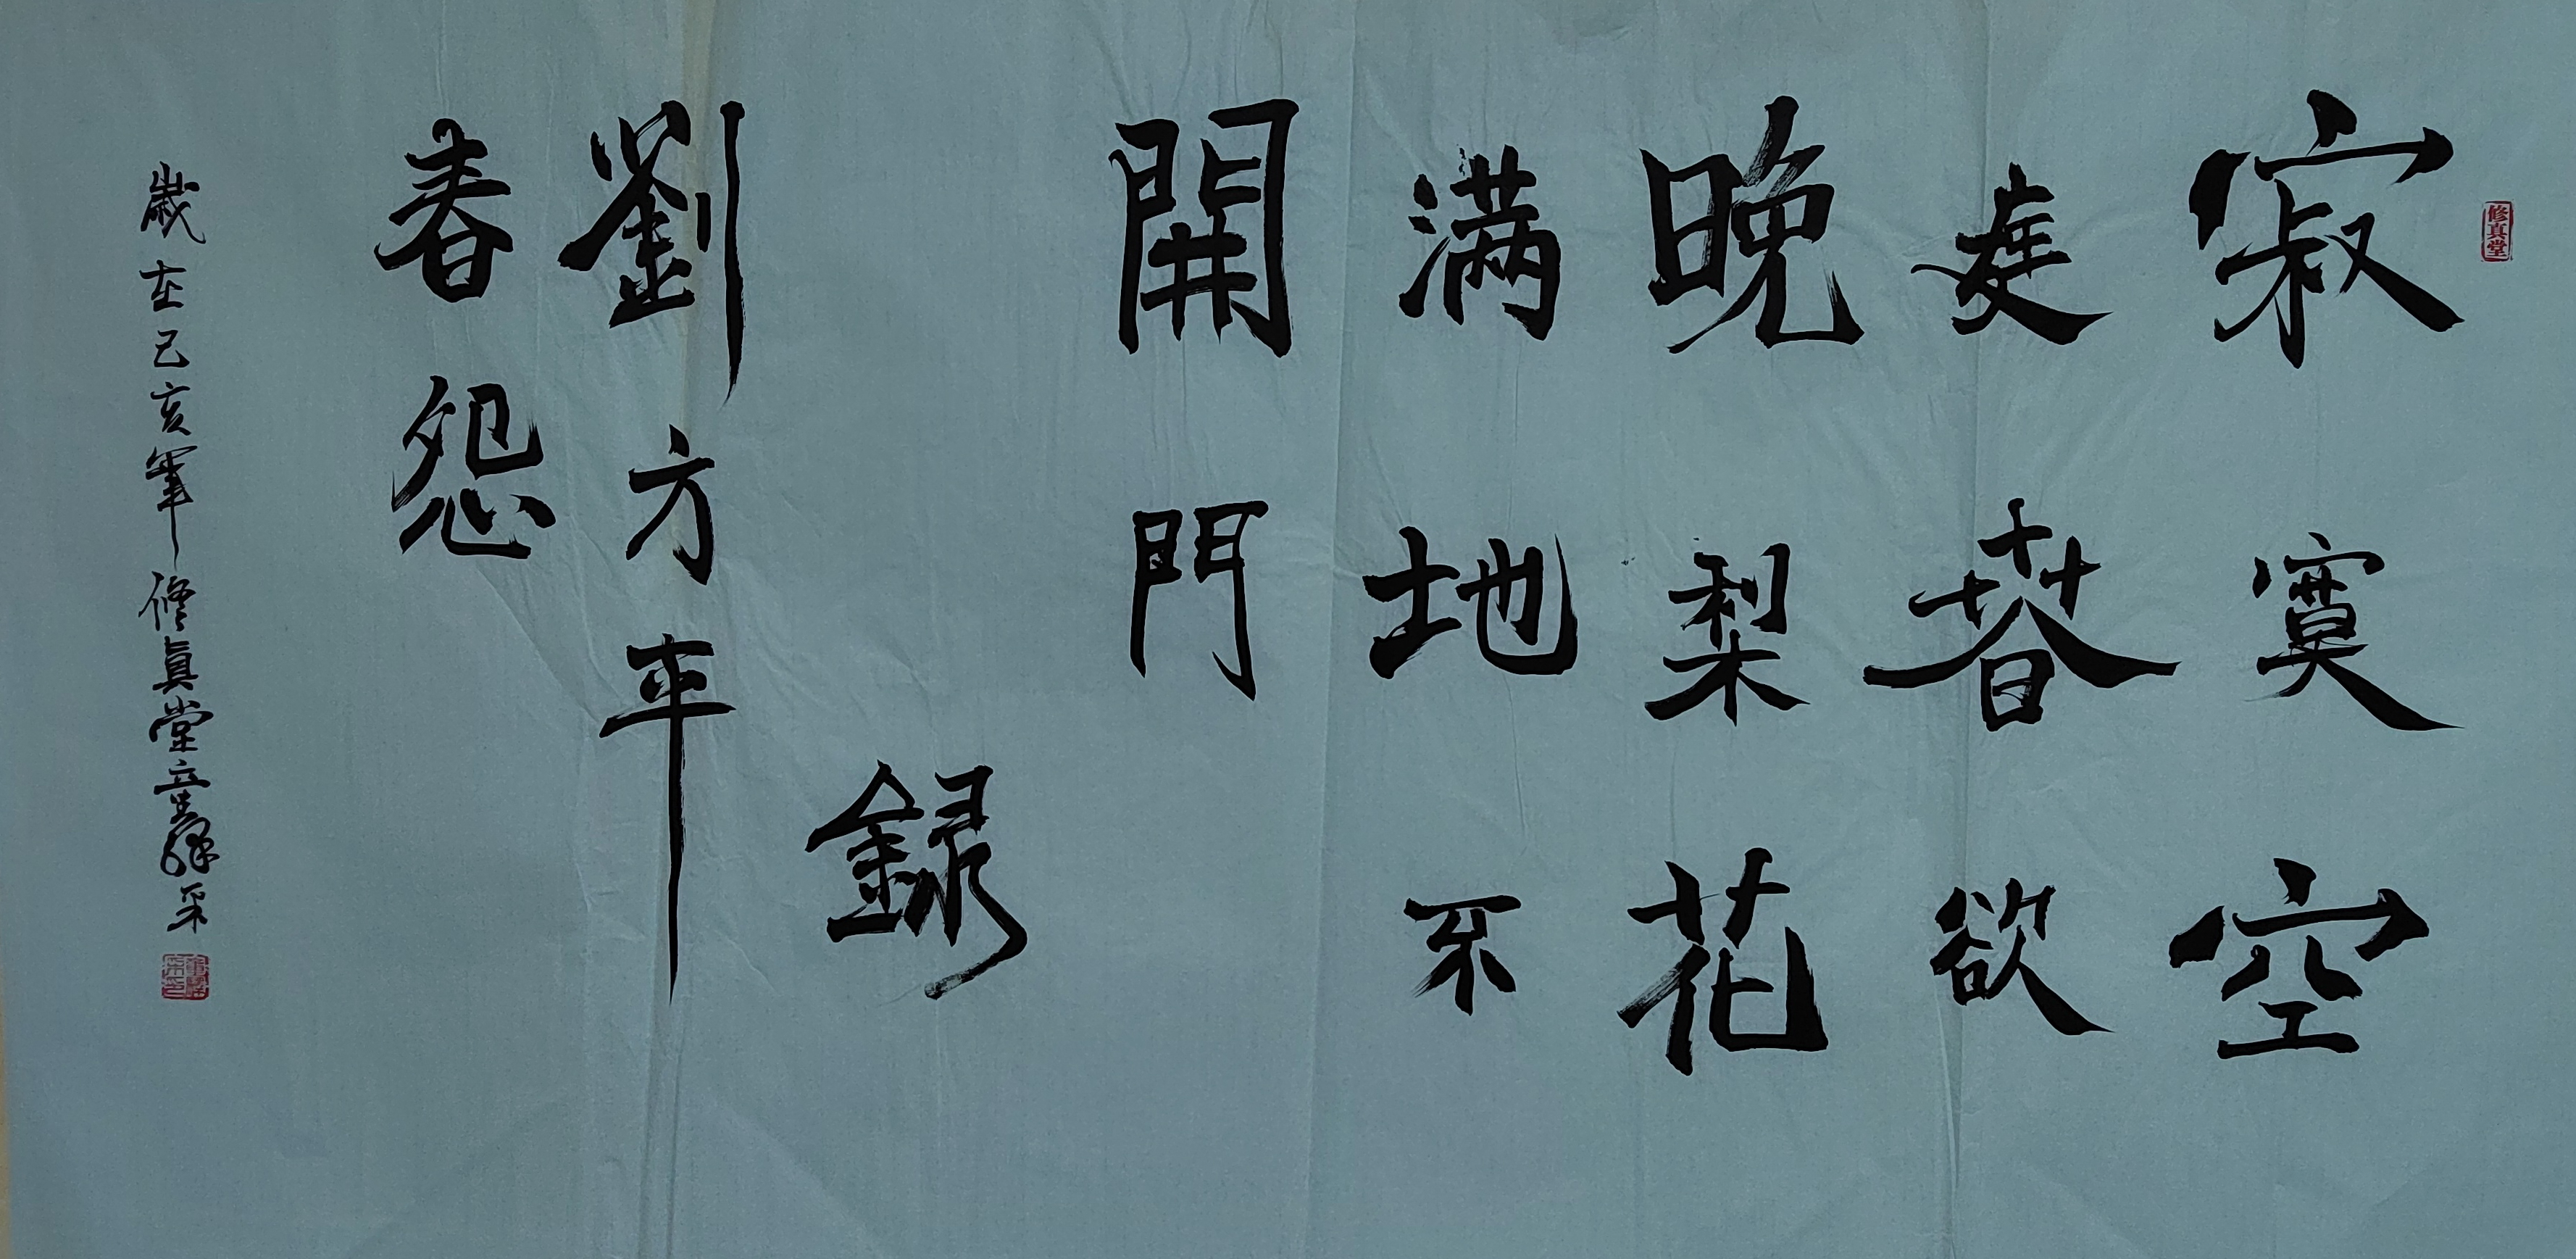 修真堂
寂寞空
庭春欲
晚梨花
满地不
開門
録
劉方平
春怨
歲在己亥軍修真堂主